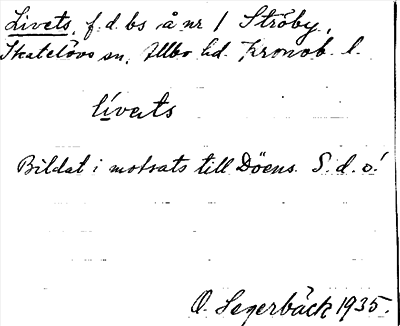 Livets, f.d. bs å nr 1 Ströby,
Skatelövs sn, Allbo hd. Kronob. l.
lívəts
Bildat i motsats till Döens. S. d. o!
O. Segerbäck 1935.